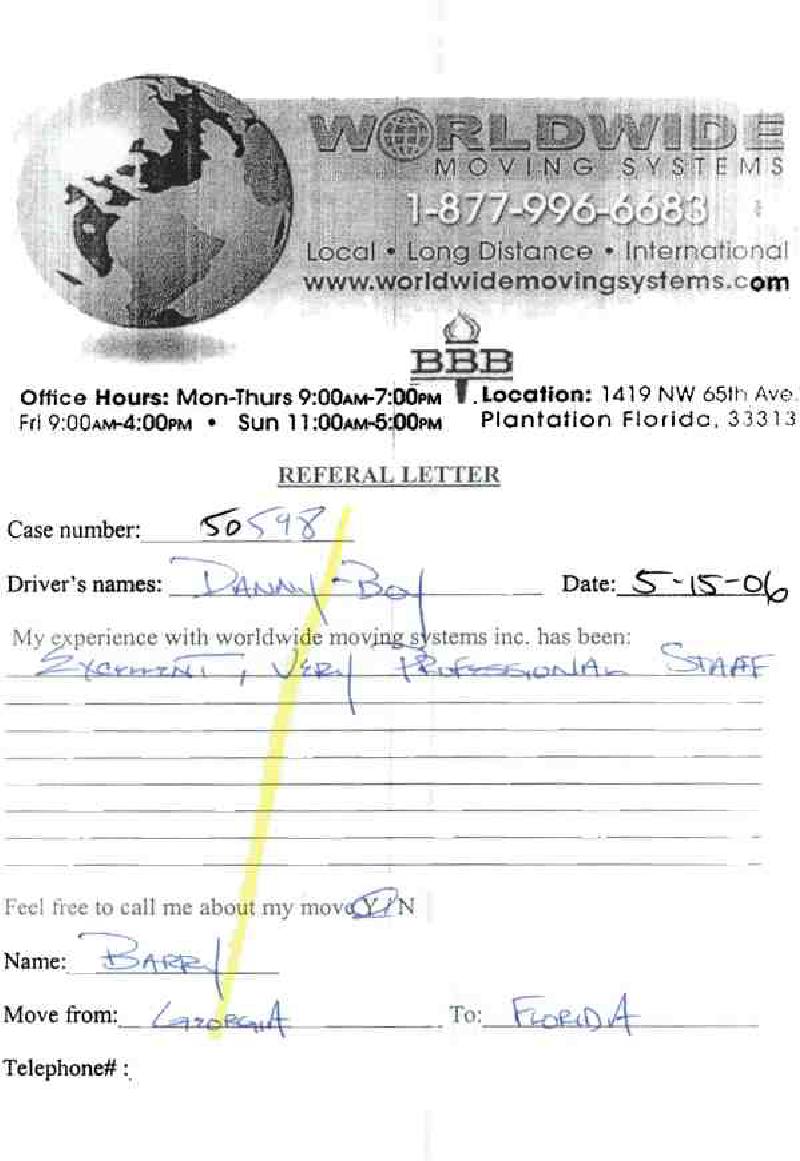 WORLDWIDE
MOVING SYSTEMS
1-877-996-6683
Local • Long Distance • International
www.worldwidemovingsystems.com
BBB
Office Hours: Mon-Thurs 9:00AM-7:00PM
Fri 9:00AM-4:00PM • Sun 11:00AM-5:00PM
Location: 1419 NW 65th Ave.
Plantation Florida, 33313
REFERAL LETTER
Case number: 50598
Driver's names: DANNY-BOY Date: 5-15-06
My experience with worldwide moving systems inc. has been:
EXCELLENT, VERY PROFESSIONAL STAFF
Feel free to call me about my move Y/N
Name: BARRY
Move from: GEORGIA To: FLORIDA
Telephone# :